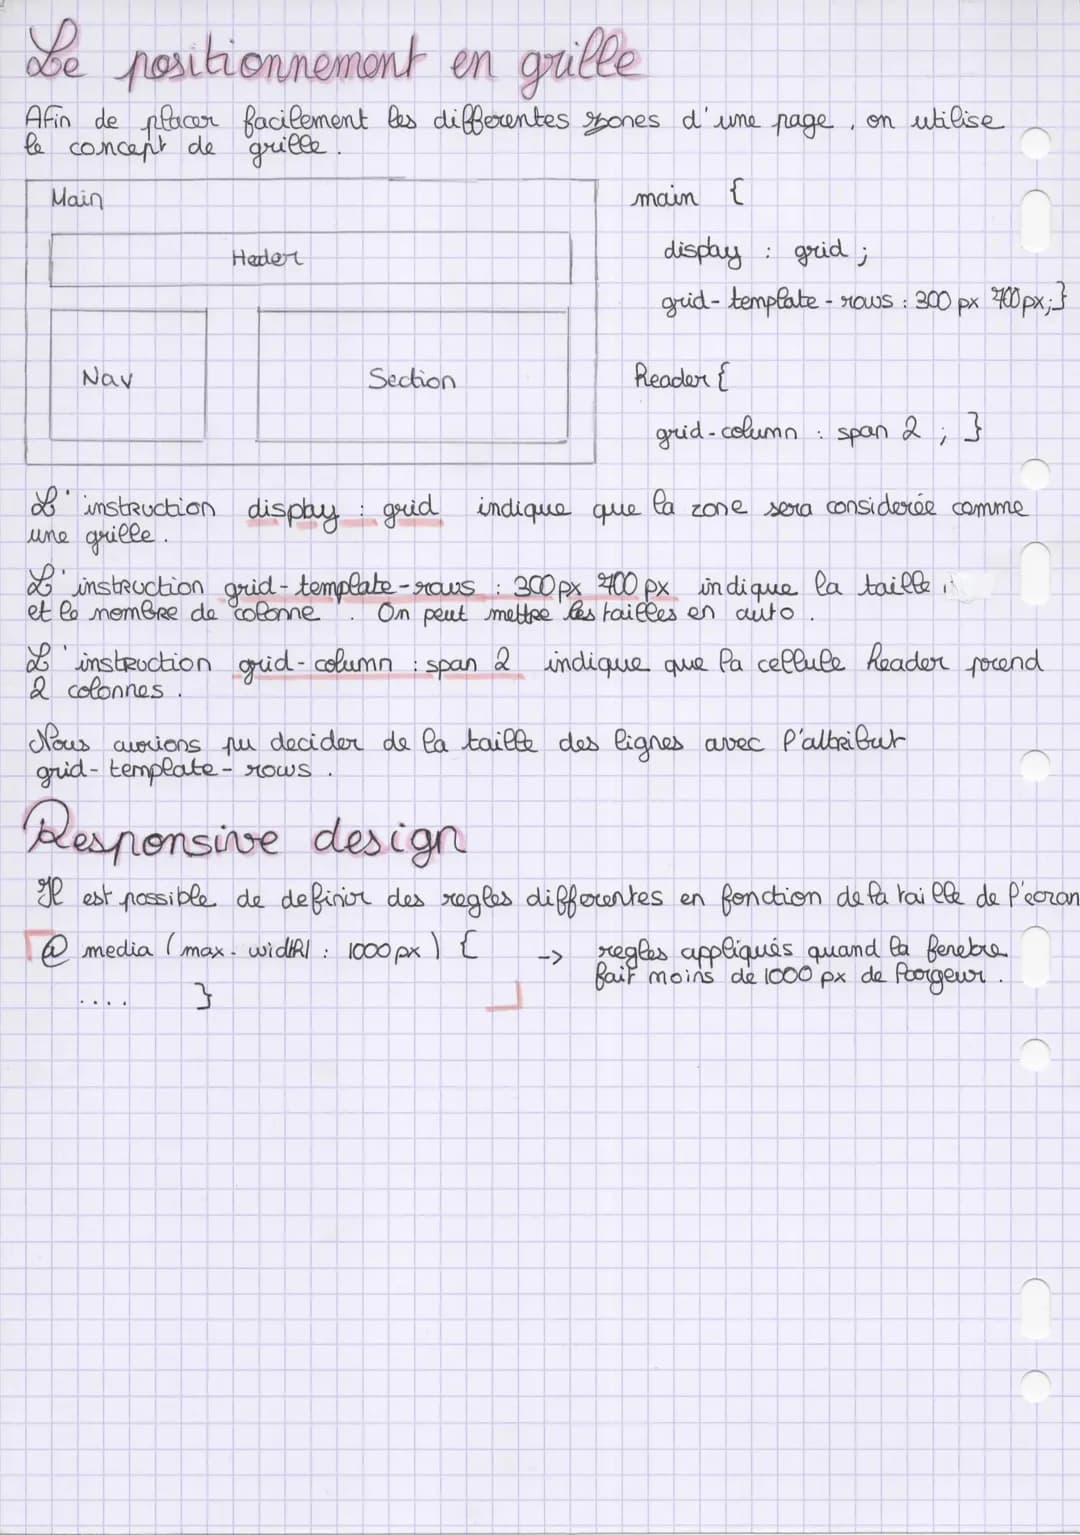 Le positionnement en grille
Afin de placer facilement les differentes zones d'une page, on utilise
le concept de grille.
Main
Heder
Nav
Section
main {
display : grid ;
grid-template-rows : 300 px 700px;}
header {
grid-column : span 2 ; }
L'instruction display : grid indique que la zone sera considerée comme
une grille.
L'instruction grid-template-rows : 300px 700 px indique la taille
et le nombre de colonne. On peut mettre les tailles en auto.
L'instruction grid-column : span 2 indique que la cellule header prend
2 colonnes.
Nous aurions pu decider de la taille des lignes avec l'attribut
grid-template-rows.
Responsive design
Il est possible de definir des regles differentes en fonction de la taille de l'ecran
@ media (max-width : 1000px) {
.... }
-> regles appliqués quand la fenetre
fait moins de 1000 px de largeur.